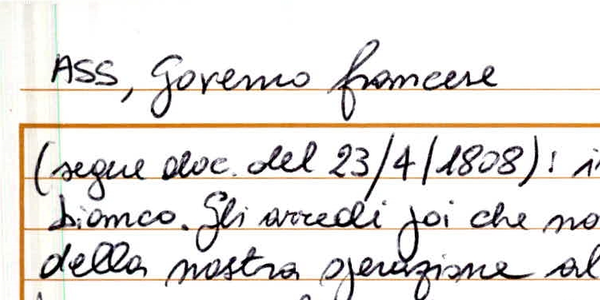 ASS, Governo francese
(segue doc. del 23/4/1808): i
bianco. Gli arredi poi che no
della nostra operazione al